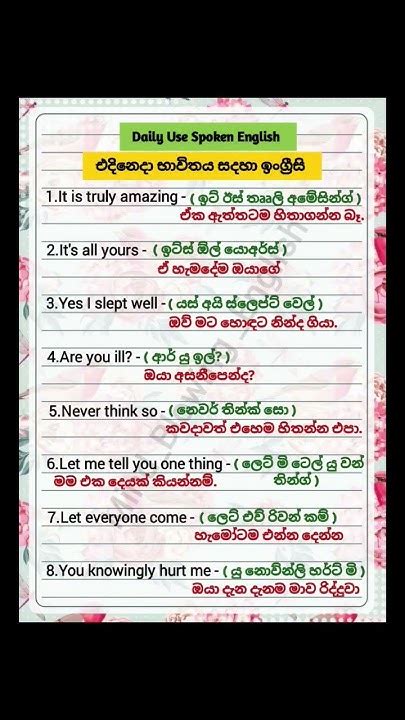 Daily Use Spoken English
එදිනෙදා භාවිතය සදහා ඉංග්‍රීසි
1.It is truly amazing - ( ඉට් ඊස් තෲලි අමේසින්ග් )
ඒක ඇත්තටම හිතාගන්න බෑ.
2.It's all yours - ( ඉට්ස් ඕල් යොඅර්ස් )
ඒ හැමදේම ඔයාගේ
3.Yes I slept well - ( යස් අයි ස්ලෙප්ට් වෙල් )
ඔව් මට හොඳට නින්ද ගියා.
4.Are you ill? - ( ආර් යු ඉල්? )
ඔයා අසනීපෙන්ද?
5.Never think so - ( නෙවර් තින්ක් සො )
කවදාවත් එහෙම හිතන්න එපා.
6.Let me tell you one thing - ( ලෙට් මි ටෙල් යු වන්
තින්ග් )
මම එක දෙයක් කියන්නම්.
7.Let everyone come - ( ලෙට් එව් රිවන් කම් )
හැමෝටම එන්න දෙන්න
8.You knowingly hurt me - ( යු නොවින්ලි හර්ට් මි )
ඔයා දැන දැනම මාව රිද්දුවා